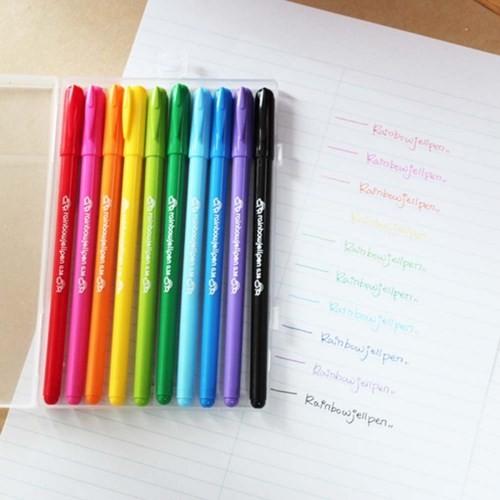 rainbowjellpen 0.38
rainbowjellpen 0.38
rainbowjellpen 0.38
rainbowjellpen 0.38
rainbowjellpen 0.38
rainbowjellpen 0.38
rainbowjellpen 0.38
rainbowjellpen 0.38
rainbowjellpen 0.38
rainbowjellpen 0.38
Rainbowjellpen..
Rainbowjellpen..
Rainbowjellpen..
Rainbowjellpen..
Rainbowjellpen..
Rainbowjellpen..
Rainbowjellpen..
Rainbowjellpen..
Rainbowjellpen..
Rainbowjellpen..